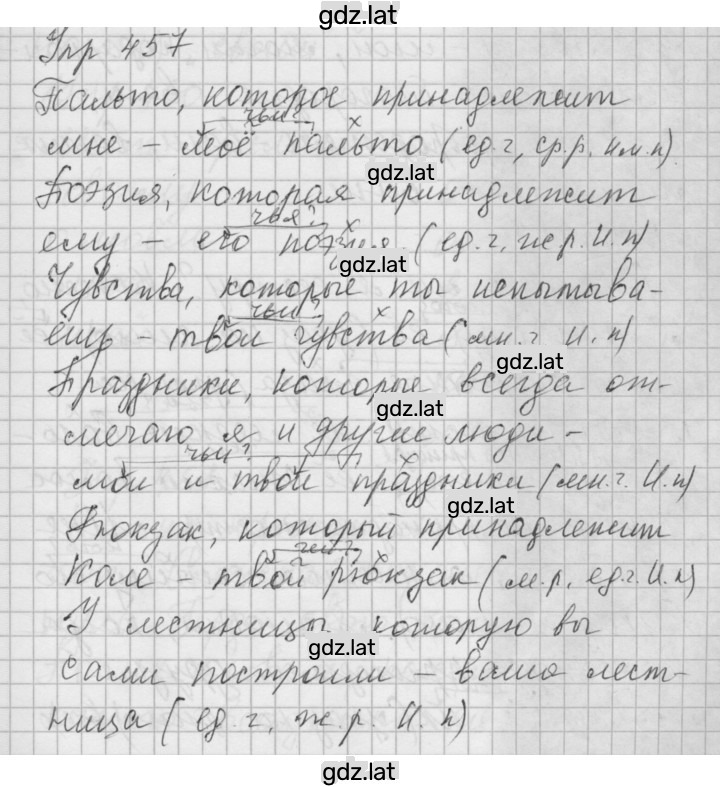 gdz.lat
Упр 457
Пальто, которое принадлежит
чьи?
мне - моё пальто (ед.ч, ср.р. и.м.п)
gdz.lat
Поэзия, которая принадлежит
чья?
ему - его поэзия (ед.ч, ж.р. И.п)
gdz.lat
Чувства, которые ты испытыва-
чьи?
ешь - твои чувства (мн.ч И.п)
gdz.lat
Праздники, которые всегда от-
gdz.lat
мечаю я и другие люди -
чьи?
мои и твои праздники (мн.ч. И.п)
gdz.lat
Рюкзак, который принадлежит
чей?
Коле - твой рюкзак (м.р, ед.ч. И.п)
У лестницы которую вы
gdz.lat
сами построили - ваша лест-
ница (ед.ч, ж.р. И.п)
gdz.lat